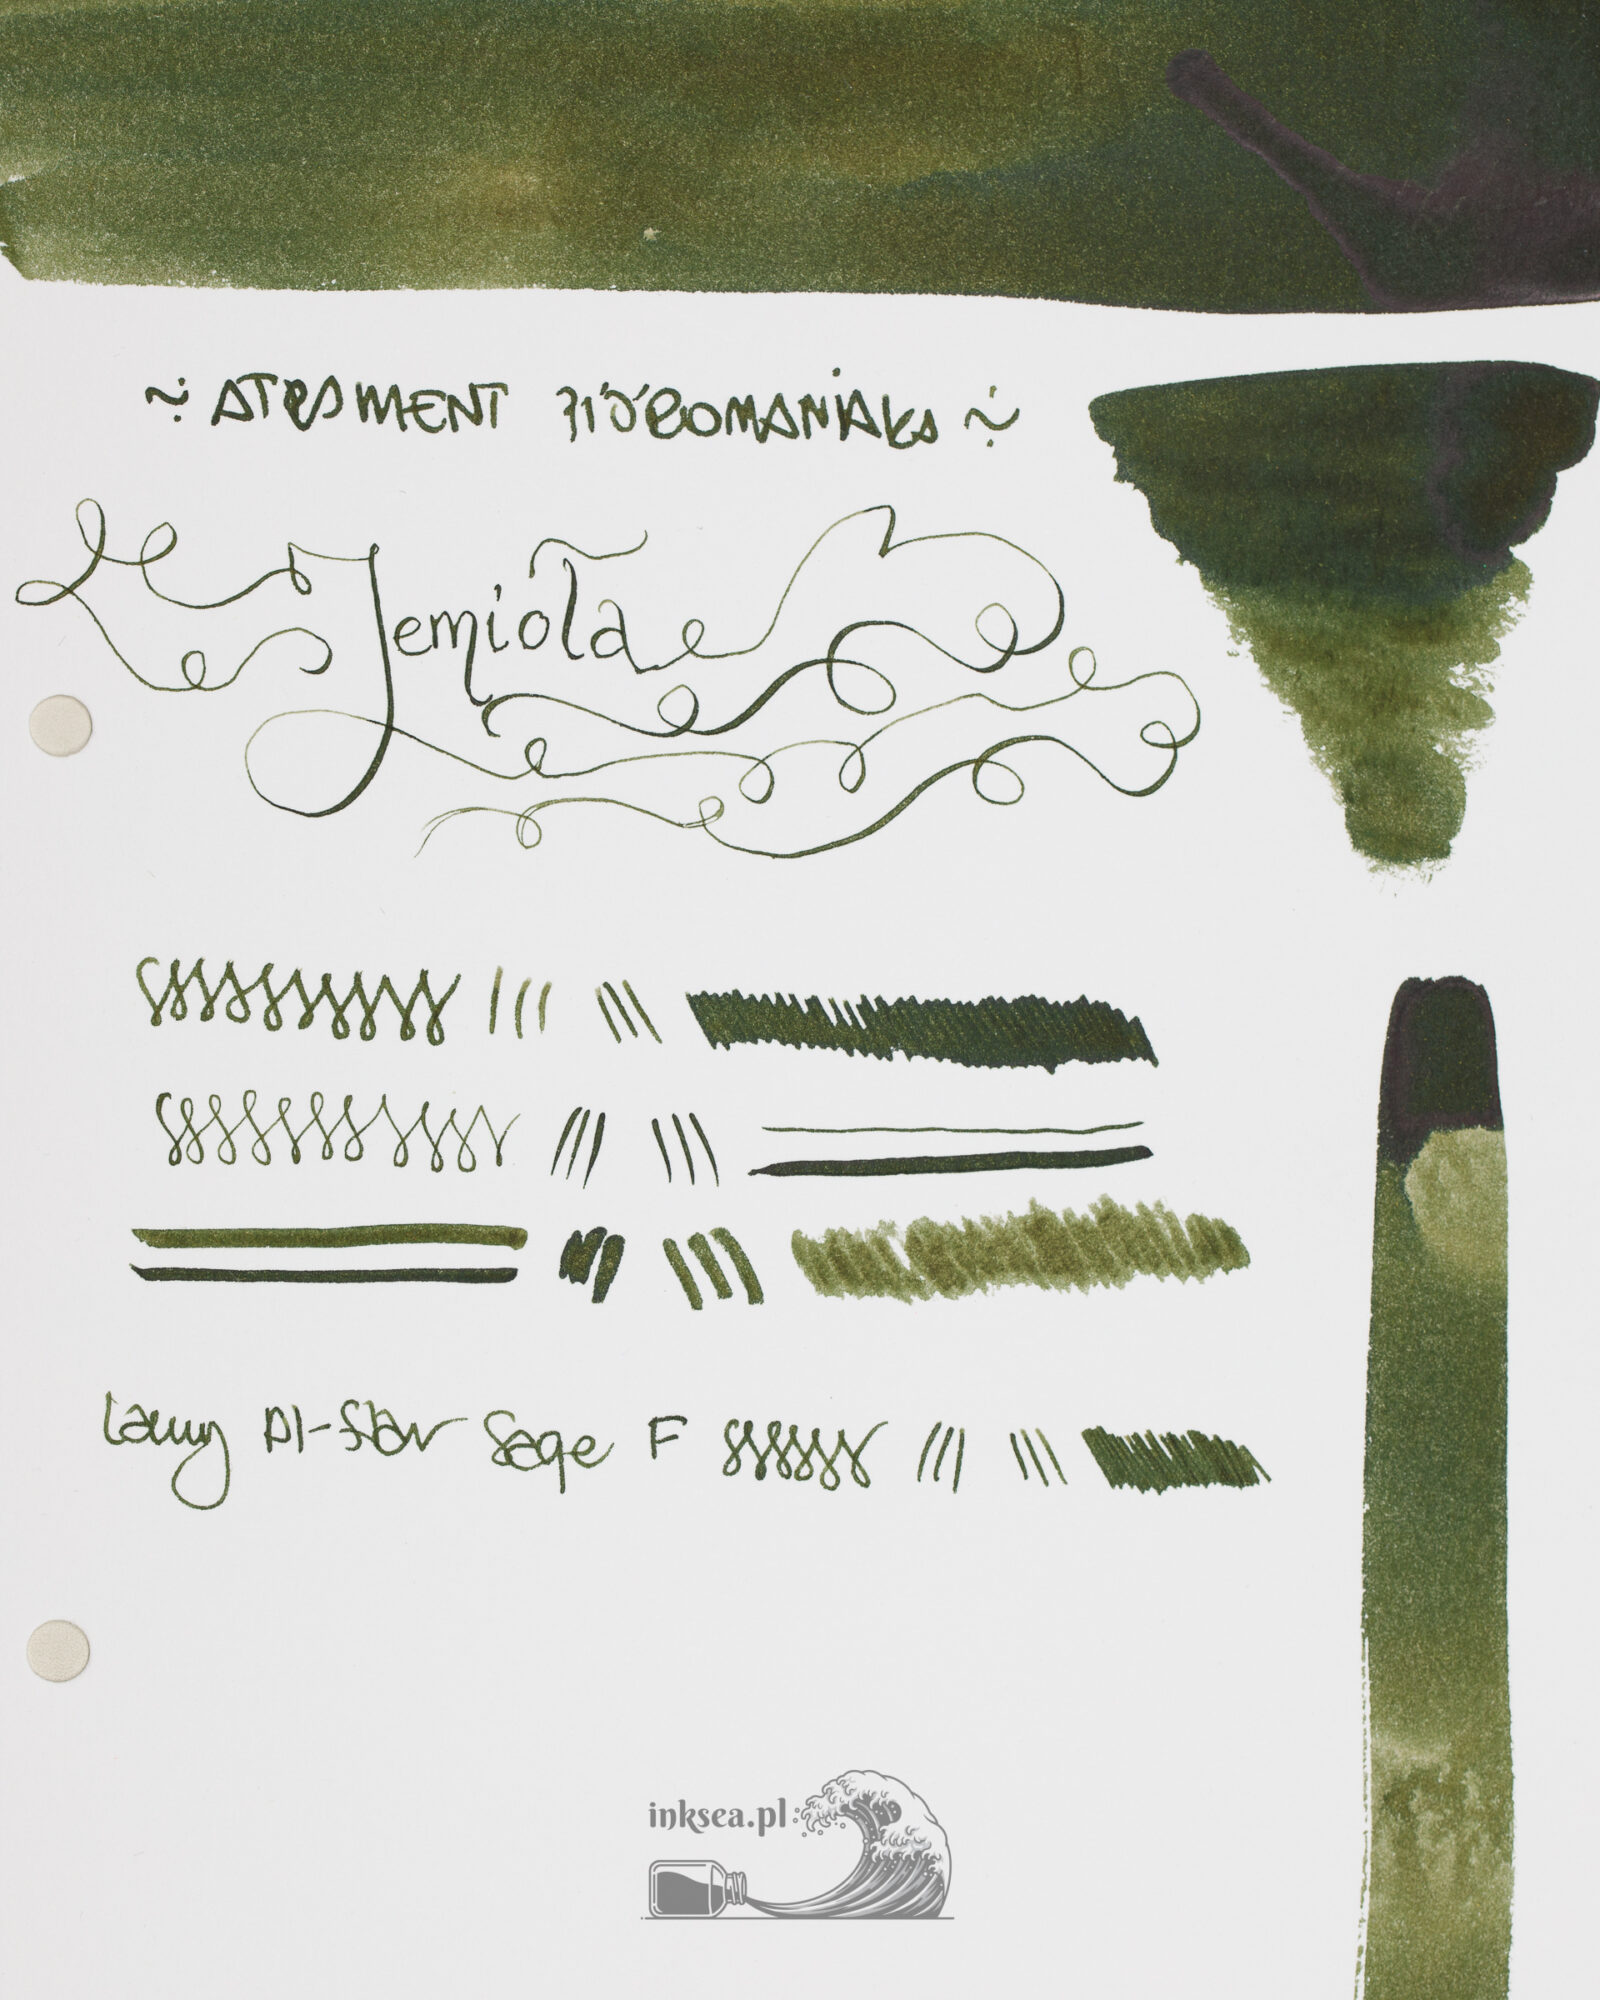 ~ ATRAMENT PIÓROMANIAKA ~
Jemioła
Lamy Al-Star Sage F
inksea.pl